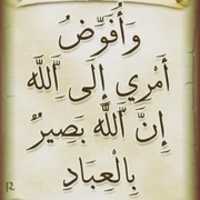 وَأُفَوِّضُ
أَمْرِي إِلَى ٱللَّهِ
إِنَّ ٱللَّهَ بَصِيرٌ
بِٱلْعِبَادِ